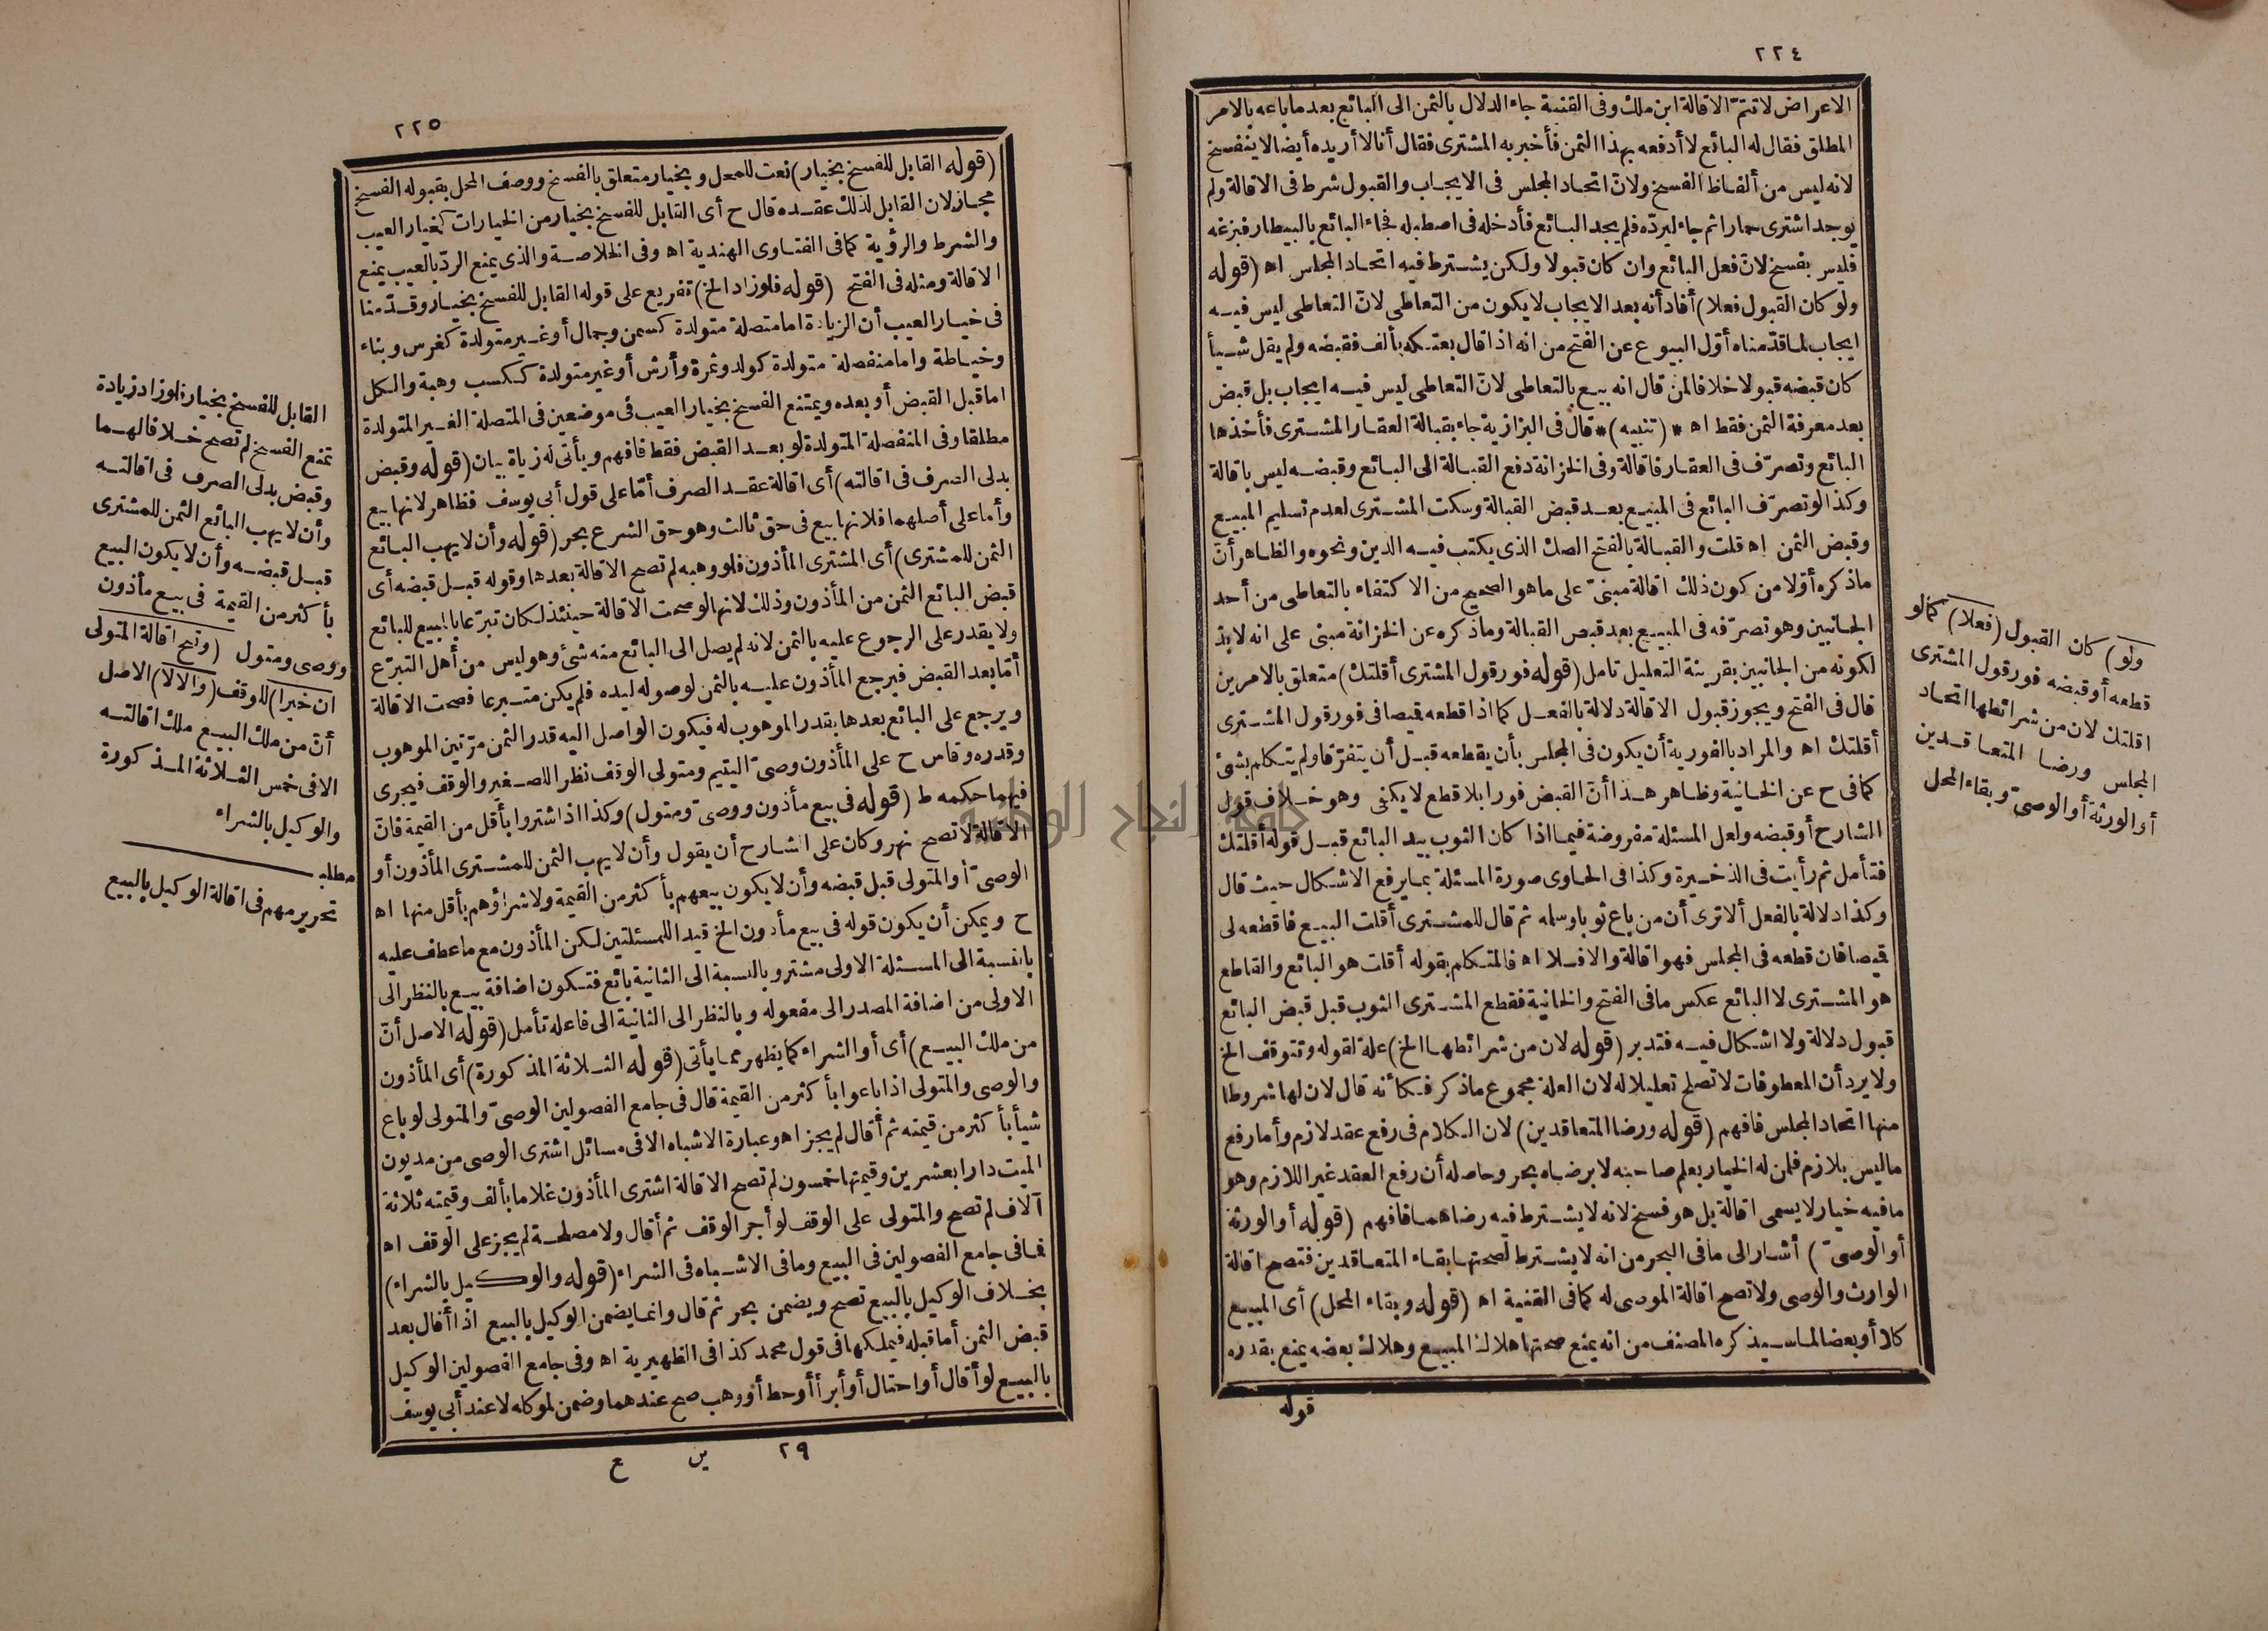 ٢٢٤
الاعراض لا تتمّ الاقالة ابن ملك وفى القنية جاء الدلال بالثمن الى البائع بعد ما باعه بالامر
المطلق فقال له البائع لا أدفعه بهذا الثمن فأخبر به المشترى فقال أنا لا أريده أيضا لا ينفسخ
لانه ليس من ألفاظ الفسخ ولانّ اتحاد المجلس فى الايجاب والقبول شرط فى الاقالة ولم
يوجد اشترى حمارا ثم جاء ليردّه فلم يجد البائع فأدخله فى اصطبله فجاء البائع بالبيطار فبزغه
فليس بفسخ لانّ فعل البائع وان كان قبولا ولكن يشترط فيه اتحاد المجلس اه (قوله
ولو كان القبول فعلا) أفاد أنه بعد الايجاب لا يكون من التعاطى لانّ التعاطى ليس فيه
ايجاب لما قدّمناه أوّل البيوع عن الفتح من انه اذا قال بعتكه بألف فقبضه ولم يقل شيأ
كان قبضه قبولا خلافا لمن قال انه بيع بالتعاطى لانّ التعاطى ليس فيه ايجاب بل قبض
بعد معرفة الثمن فقط اه * (تنبيه) * قال فى البزازية جاء بقبالة العقار المشترى فأخذها
البائع وتصرّف فى العقار فاقالة وفى الخزانة دفع القبالة الى البائع وقبضه ليس باقالة
وكذا لو تصرّف البائع فى المبيع بعد قبض القبالة وسكت المشترى لعدم تسليم المبيع
وقبض الثمن اه قلت والقبالة بالفتح الصك الذى يكتب فيه الدين ونحوه والظاهر أنّ
ما ذكره أوّلا من كون ذلك اقالة مبنىّ على ما هو الصحيح من الاكتفاء بالتعاطى من أحد
الجانبين وهو تصرّفه فى المبيع بعد قبض القبالة وما ذكره عن الخزانة مبنى على انه لا بدّ
لكونه من الجانبين بقرينة التعليل تامل (قوله فور قول المشترى أقلتك) متعلق بالامرين
قال فى الفتح ويجوز قبول الاقالة دلالة بالفعل كما اذا قطعه قميصا فى فور قول المشترى
أقلتك اه والمراد بالفورية أن يكون فى المجلس بأن يقطعه قبل أن يتفرّقا ولم يتكلم بشئ
كما فى ح عن الخانية وظاهر هذا أنّ القبض فورا بلا قطع لا يكفى وهو خلاف قول
الشارح أو قبضه ولعل المسئلة مفروضة فيما اذا كان الثوب بيد البائع قبل قوله أقلتك
فتأمل ثم رأيت فى الذخيرة وكذا فى الحاوى صورة المسئلة بما يرفع الاشكال حيث قال
وكذا دلالة بالفعل ألا ترى أن من باع ثوبا وسلمه ثم قال للمشترى أقلت البيع فاقطعه لى
قميصا فان قطعه فى المجلس فهو اقالة والا فلا اه فالمتكلم بقوله أقلت هو البائع والقاطع
هو المشترى لا البائع عكس ما فى الفتح والخانية فقطع المشترى الثوب قبل قبض البائع
قبول دلالة ولا اشكال فيه فتدبر (قوله لان من شرائطها الخ) علة لقوله وتتوقف الخ
ولا يرد أن المعطوفات لا تصلح تعليلا له لان العلة مجموع ما ذكر فكأنه قال لان لها شروطا
منها اتحاد المجلس فافهم (قوله ورضا المتعاقدين) لان الكلام فى رفع عقد لازم وأما رفع
ما ليس بلازم فلمن له الخيار بعلم صاحبه لا برضاه بحر وحاصله أن رفع العقد غير اللازم وهو
ما فيه خيار لا يسمى اقالة بل هو فسخ لانه لا يشترط فيه رضاهما فافهم (قوله أو الورثة
أو الوصىّ) أشار الى ما فى البحر من انه لا يشترط لصحتها بقاء المتعاقدين فتصح اقالة
الوارث والوصى ولا تصح اقالة الموصى له كما فى القنية اه (قوله وبقاء المحل) أى المبيع
كلا أو بعضا لما سيذكره المصنف من انه يمنع صحتها هلاك المبيع وهلاك بعضه يمنع بقدره
قوله
ولو) كان القبول (فعلا) كما لو
قطعه أو قبضه فور قول المشترى
اقلتك لان من شرائطها اتحاد
المجلس ورضا المتعاقدين
أو الورثة أو الوصىّ وبقاء المحل
٢٢٥
(قوله القابل للفسخ بخيار) نعت للمحل وبخيار متعلق بالفسخ ووصف المحل بقبوله الفسخ
مجاز لان القابل لذلك عقده قال ح أى القابل للفسخ بخيار من الخيارات كخيار العيب
والشرط والرؤية كما فى الفتاوى الهندية اه وفى الخلاصة والذى يمنع الردّ بالعيب يمنع
الاقالة ومثله فى الفتح (قوله فلو زاد الخ) تفريع على قوله القابل للفسخ بخيار وقدّمنا
فى خيار العيب أن الزيادة اما متصلة متولدة كسمن وجمال أو غير متولدة كغرس وبناء
وخياطة واما منفصلة متولدة كولد وثمرة وأرش أو غير متولدة ككسب وهبة والكل
اما قبل القبض أو بعده ويمتنع الفسخ بخيار العيب فى موضعين فى المتصلة الغير المتولدة
مطلقا وفى المنفصلة المتولدة لو بعد القبض فقط فافهم ويأتى له زياة بيان (قوله وقبض
بدلى الصرف فى اقالته) أى اقالة عقد الصرف أمّا على قول أبى يوسف فظاهر لانها بيع
وأما على أصلهما فلانها بيع فى حق ثالث وهو حق الشرع بحر (قوله وأن لا يهب البائع
الثمن للمشترى) أى المشترى المأذون فلو وهبه لم تصح الاقالة بعدها وقوله قبل قبضه أى
قبض البائع الثمن من المأذون وذلك لانها لو صحت الاقالة حينئذ لكان تبرّعا بالمبيع للبائع
ولا يقدر على الرجوع عليه بالثمن لانه لم يصل الى البائع منه شئ وهو ليس من أهل التبرّع
أمّا بعد القبض فيرجع المأذون عليه بالثمن لوصوله ليده فلم يكن متبرعا فصحت الاقالة
ويرجع على البائع بعدها بقدر الموهوب له فيكون الواصل اليه قدر الثمن مرّتين الموهوب
وقدره وقاس ح على المأذون وصىّ اليتيم ومتولى الوقف نظرا للصغير والوقف فيجرى
فيهما حكمه ط (قوله فى بيع مأذون ووصىّ ومتول) وكذا اذا اشتروا بأقل من القيمة فانّ
الاقالة لا تصح نهر وكان على الشارح أن يقول وأن لا يهب الثمن للمشترى المأذون أو
الوصىّ أو المتولى قبل قبضه وأن لا يكون بيعهم بأكثر من القيمة ولا شراؤهم بأقل منها اه
ح ويمكن أن يكون قوله فى بيع مأذون الخ قيدا للمسئلتين لكن المأذون مع ما عطف عليه
بالنسبة الى المسئلة الاولى مشتر وبالنسبة الى الثانية بائع فتكون اضافة بيع بالنظر الى
الاولى من اضافة المصدر الى مفعوله وبالنظر الى الثانية الى فاعله تأمل (قوله الاصل أنّ
من ملك البيع) أى أو الشراء كما يظهر مما يأتى (قوله الثلاثة المذكورة) أى المأذون
والوصى والمتولى اذا باعوا بأكثر من القيمة قال فى جامع الفصولين الوصىّ والمتولى لو باع
شيأ بأكثر من قيمته ثم أقال لم يجز اه وعبارة الاشباه الا فى مسائل اشترى الوصى من مديون
الميت دارا بعشرين وقيمتها خمسون لم تصح الاقالة اشترى المأذون غلاما بألف وقيمته ثلاثة
آلاف لم تصح والمتولى على الوقف لو أجر الوقف ثم أقال ولا مصلحة لم يجز على الوقف اه
فما فى جامع الفصولين فى البيع وما فى الاشباه فى الشراء (قوله والوكيل بالشراء)
بخلاف الوكيل بالبيع تصح ويضمن بحر ثم قال وانما يضمن الوكيل بالبيع اذا أقال بعد
قبض الثمن أما قبله فيملكها فى قول محمد كذا فى الظهيرية اه وفى جامع الفصولين الوكيل
بالبيع لو أقال أو احتال أو أبرأ أو حط أو وهب صح عندهما وضمن لموكله لا عند أبى يوسف
٢٩ ين ع
القابل للفسخ بخيار فلو زاد زيادة
تمنع الفسخ لم تصح خلافا لهما
وقبض بدلى الصرف فى اقالته
وأن لا يهب البائع الثمن للمشترى
قبل قبضه وأن لا يكون البيع
بأكثر من القيمة فى بيع مأذون
ووصى ومتول (وتصح اقالة المتولى
ان خيرا) للوقف (والالا) الاصل
أنّ من ملك البيع ملك اقالته
الا فى خمس الثلاثة المذكورة
والوكيل بالشراء
مطلب
تحرير مهم فى اقالة الوكيل بالبيع
جامعة النجاح الوطنية